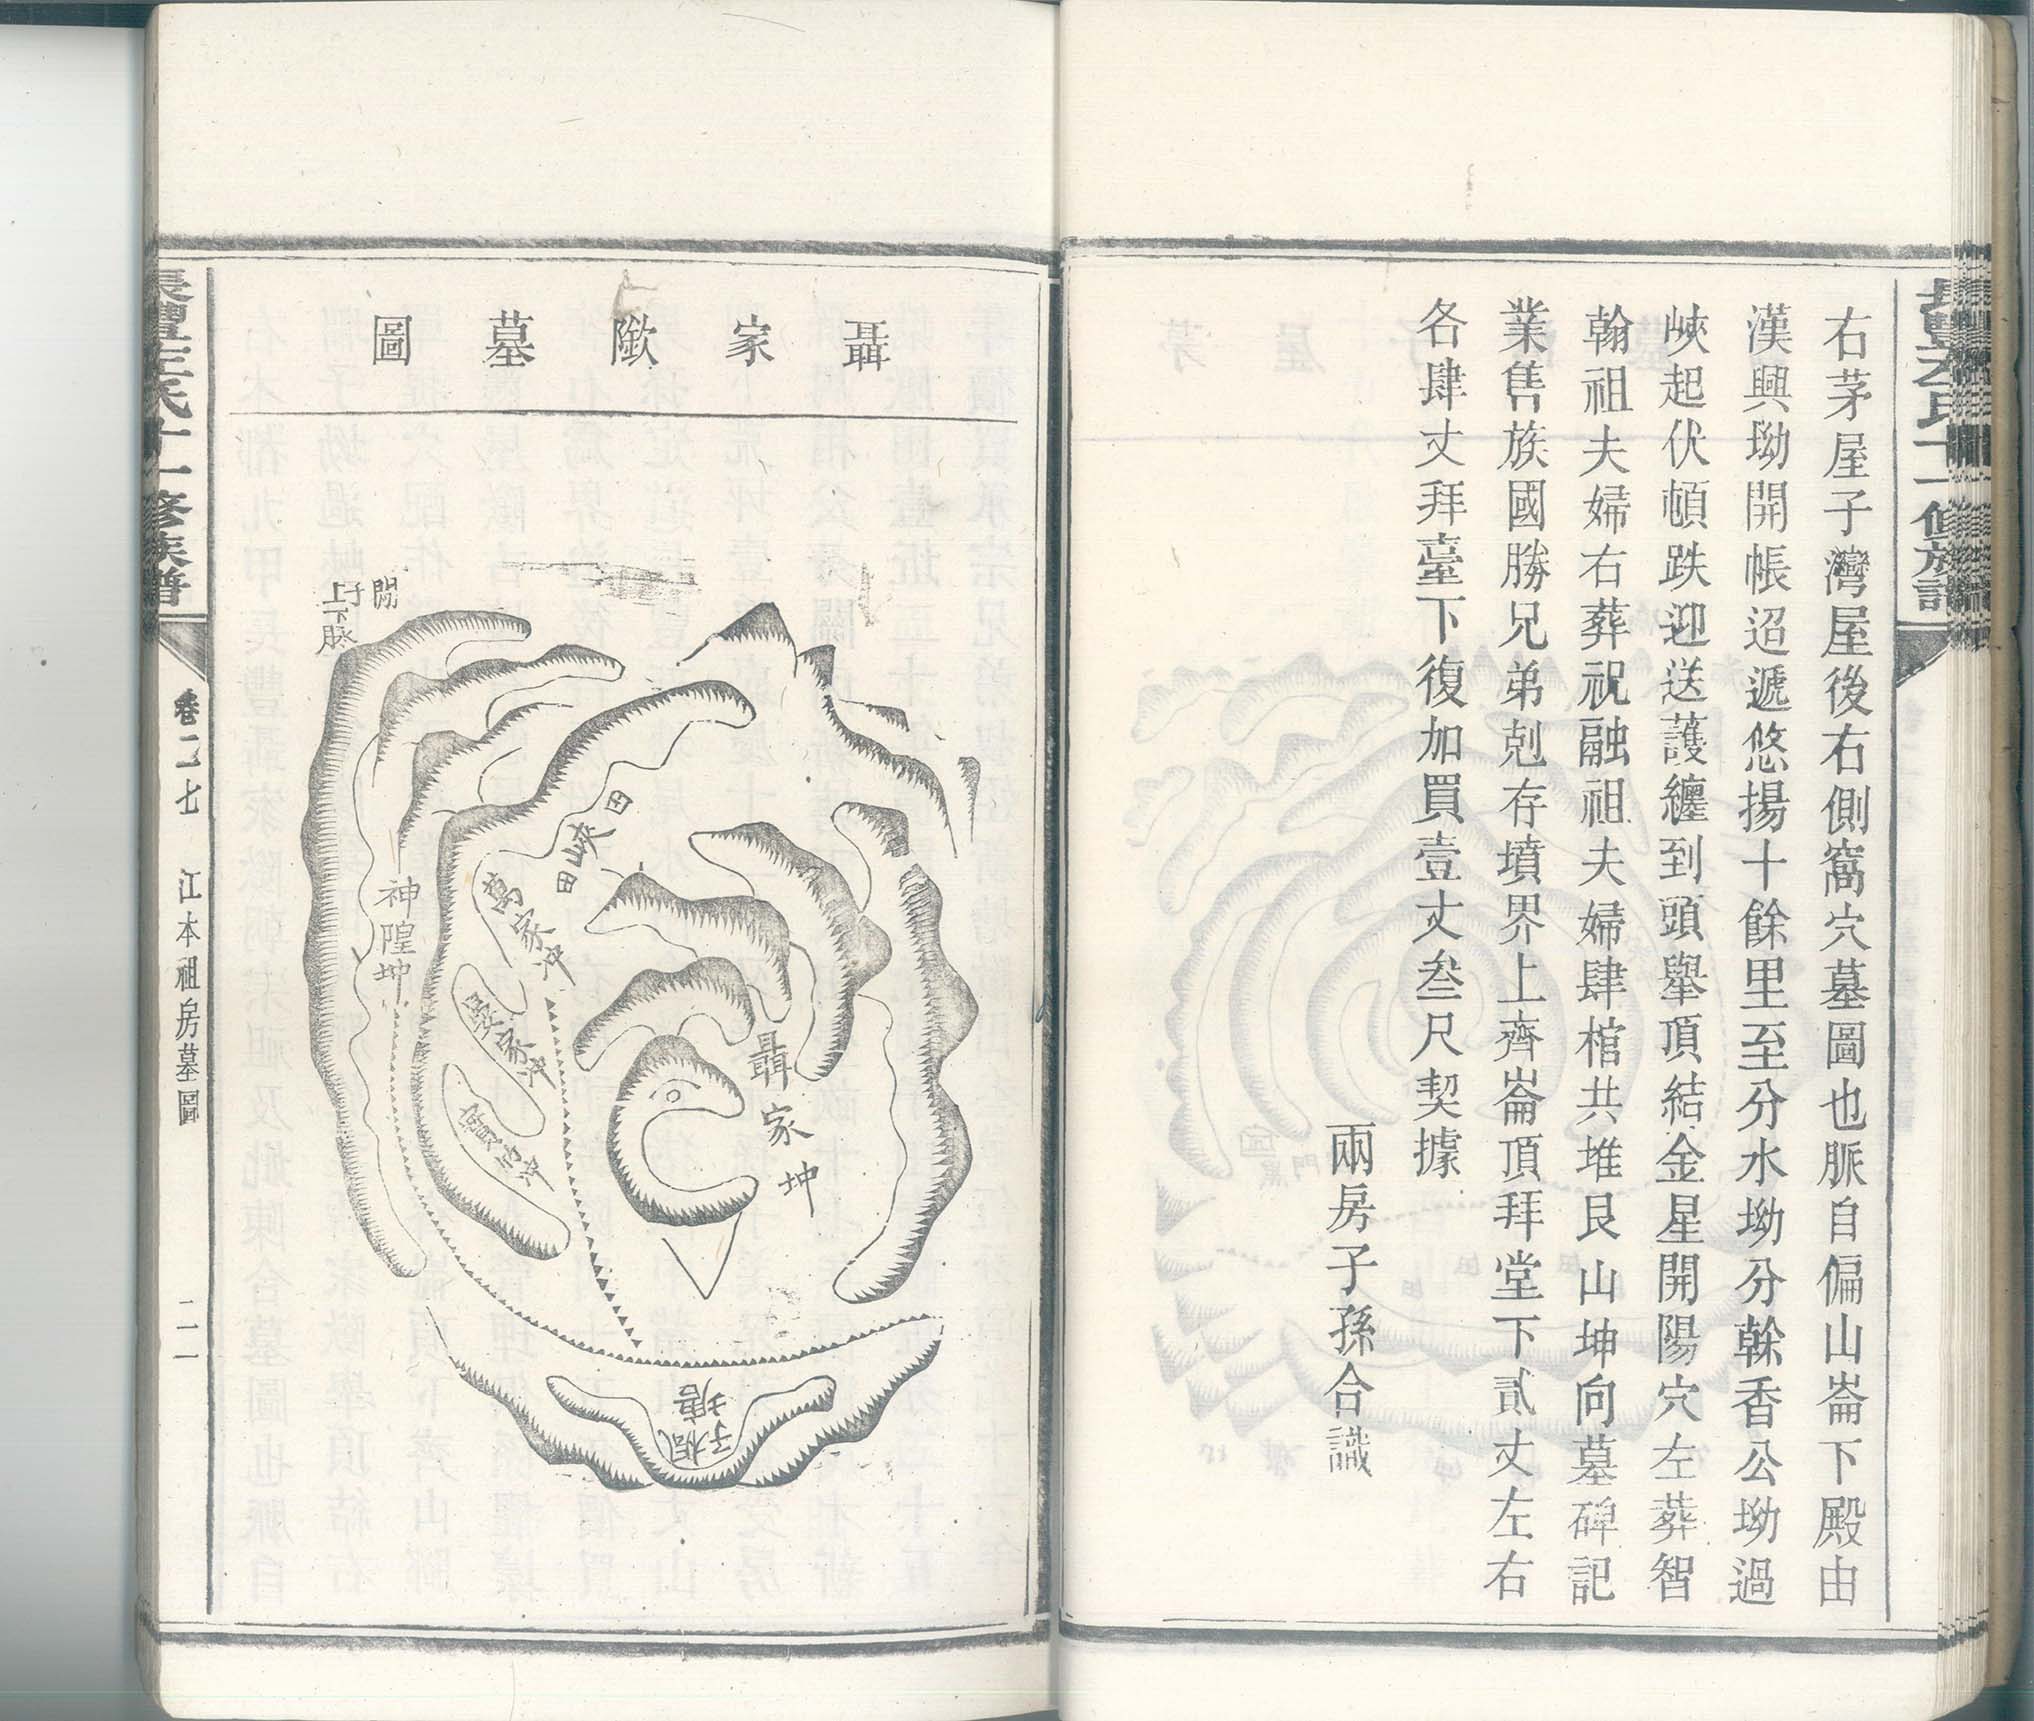 右茅屋子灣屋後右側窩穴墓圖也脈自偏山崙下殿由
漢興坳開帳迢遞悠揚十餘里至分水坳分榦香公坳過
峽起伏頓跌迎送護纏到頭舉頂結金星開陽穴左葬智
翰祖夫婦右葬祝融祖夫婦肆棺共堆艮山坤向墓碑記
業售族國勝兄弟剋存墳界上齊崙頂拜堂下貳丈左右
各肆丈拜臺下復加買壹丈叁尺契據
兩房子孫合識
聶家歘墓圖
上下脉
神隍坤
田峽田
萬家冲
晏家冲
聶家坤
楓子塘
十一修族譜
卷二七
江本祖房墓圖
二一